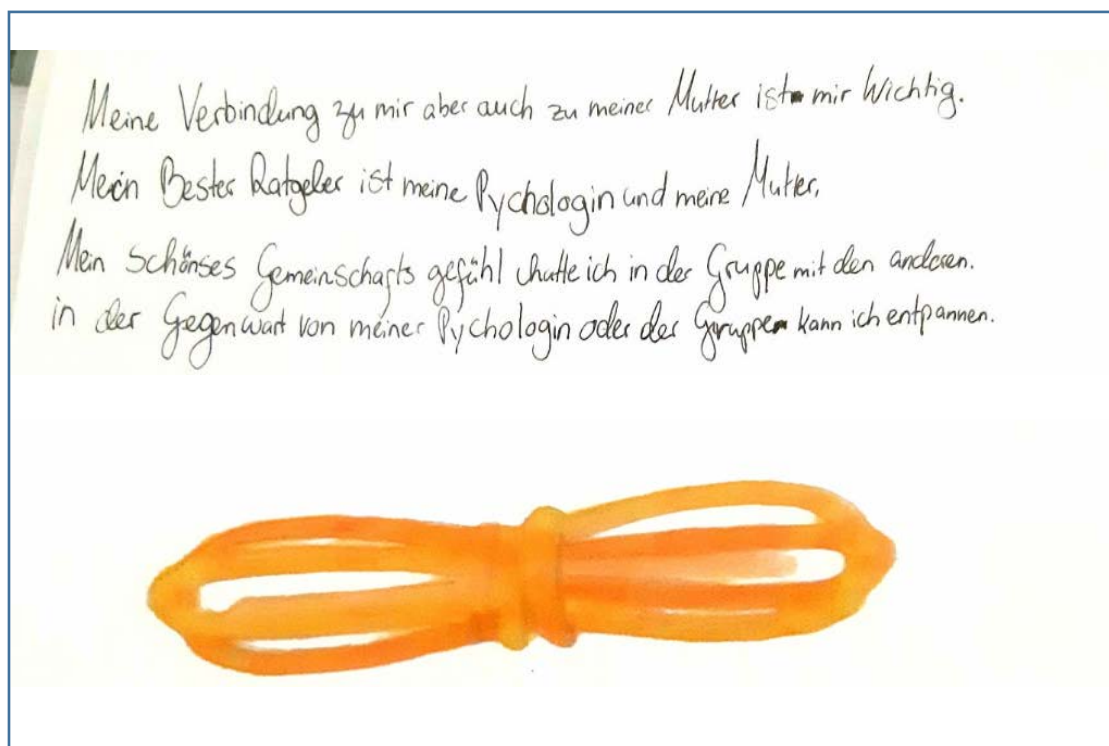 Meine Verbindung zu mir aber auch zu meiner Mutter ist mir Wichtig.
Mein Bester Ratgeber ist meine Pychologin und meine Mutter.
Mein Schönses Gemeinschafts gefühl hatte ich in der Gruppe mit den anderen.
in der Gegenwart von meiner Pychologin oder der Gruppe kann ich entpannen.